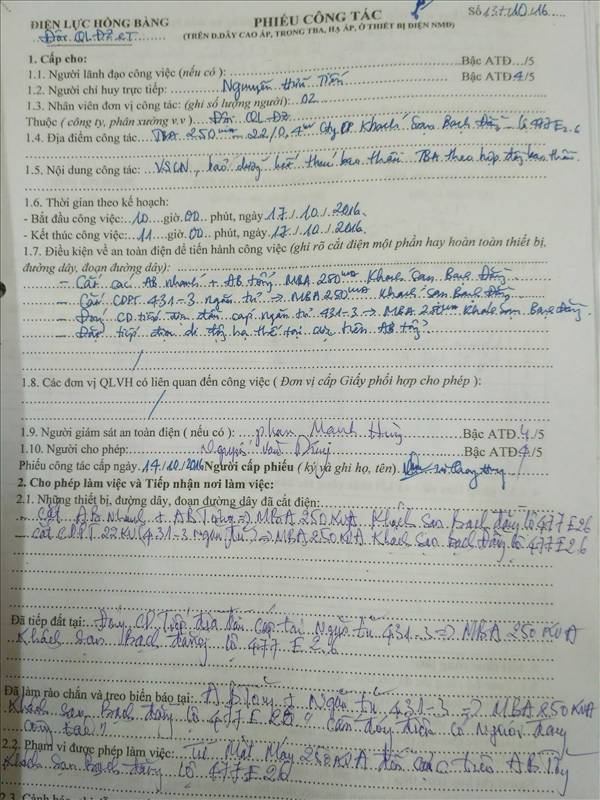 ĐIỆN LỰC HỒNG BÀNG PHIẾU CÔNG TÁC Số 137/10/16
Đội QLĐZ&RT (TRÊN Đ.DÂY CAO ÁP, TRONG TBA, HẠ ÁP, Ở THIẾT BỊ ĐIỆN NMĐ)
1. Cấp cho:
1.1. Người lãnh đạo công việc (nếu có): Bậc ATĐ.../5
1.2. Người chỉ huy trực tiếp: Nguyễn Hữu Tiến Bậc ATĐ 4/5
1.3. Nhân viên đơn vị công tác: (ghi số lượng người): 02
Thuộc (công ty, phân xưởng v.v) Đội QLĐZ
1.4. Địa điểm công tác TBA 250 KVA 22/0,4 KV Cty CP Khách Sạn Bạch Đằng lộ 477 E2.6
1.5. Nội dung công tác: VSCN, bảo dưỡng TBA theo hợp đồng
1.6. Thời gian theo kế hoạch:
- Bắt đầu công việc: 10 giờ 00 phút, ngày 17/10/2016
- Kết thúc công việc: 11 giờ 00 phút, ngày 17/10/2016
1.7. Điều kiện về an toàn điện để tiến hành công việc (ghi rõ cắt điện một phần hay hoàn toàn thiết bị,
đường dây, đoạn đường dây):
- Cắt các AB nhánh + AB tổng MBA 250 KVA Khách Sạn Bạch Đằng
- Cắt CDPT 431-3 ngăn tủ => MBA 250 KVA Khách Sạn Bạch Đằng
- Đóng CD tiếp địa đầu cáp ngăn tủ 431-3 => MBA 250 KVA Khách Sạn Bạch Đằng
- tiếp địa di động hạ thế tại cực trên AB tổng
1.8. Các đơn vị QLVH có liên quan đến công việc ( Đơn vị cấp Giấy phối hợp cho phép ):
1.9. Người giám sát an toàn điện ( nếu có ): Phan Mạnh Hùng Bậc ATĐ 4/5
1.10. Người cho phép: Nguyễn Văn Dũng Bậc ATĐ 4/5
Phiếu công tác cấp ngày 14/10/2016 Người cấp phiếu ( ký và ghi họ, tên)
2. Cho phép làm việc và Tiếp nhận nơi làm việc:
2.1. Những thiết bị, đường dây, đoạn đường dây đã cắt điện:
- Cắt AB Nhánh + AB Tổng => MBA 250 KVA Khách Sạn Bạch đằng lộ 477 E 26
- cắt CDPT 22 KV (431-3 Ngăn tủ) => MBA 250 KVA Khách Sạn Bạch Đằng lộ 477 E 2.6
Đã tiếp đất tại: Đóng CD Tiếp địa đầu cáp tại Ngăn tủ 431-3 => MBA 250 KVA
Khách Sạn Bạch đằng lộ 477 E 2.6
Đã làm rào chắn và treo biển báo tại: AB Tổng + Ngăn tủ 431-3 => MBA 250 KVA
Khách Sạn Bạch đằng lộ 477 E 26 " cấm đóng điện có Người đang
công tác "
2.2. Phạm vi được phép làm việc: Từ Mặt Máy 250 KVA đến cực trên AB Tổng
Khách Sạn Bạch đằng lộ 477 E 26